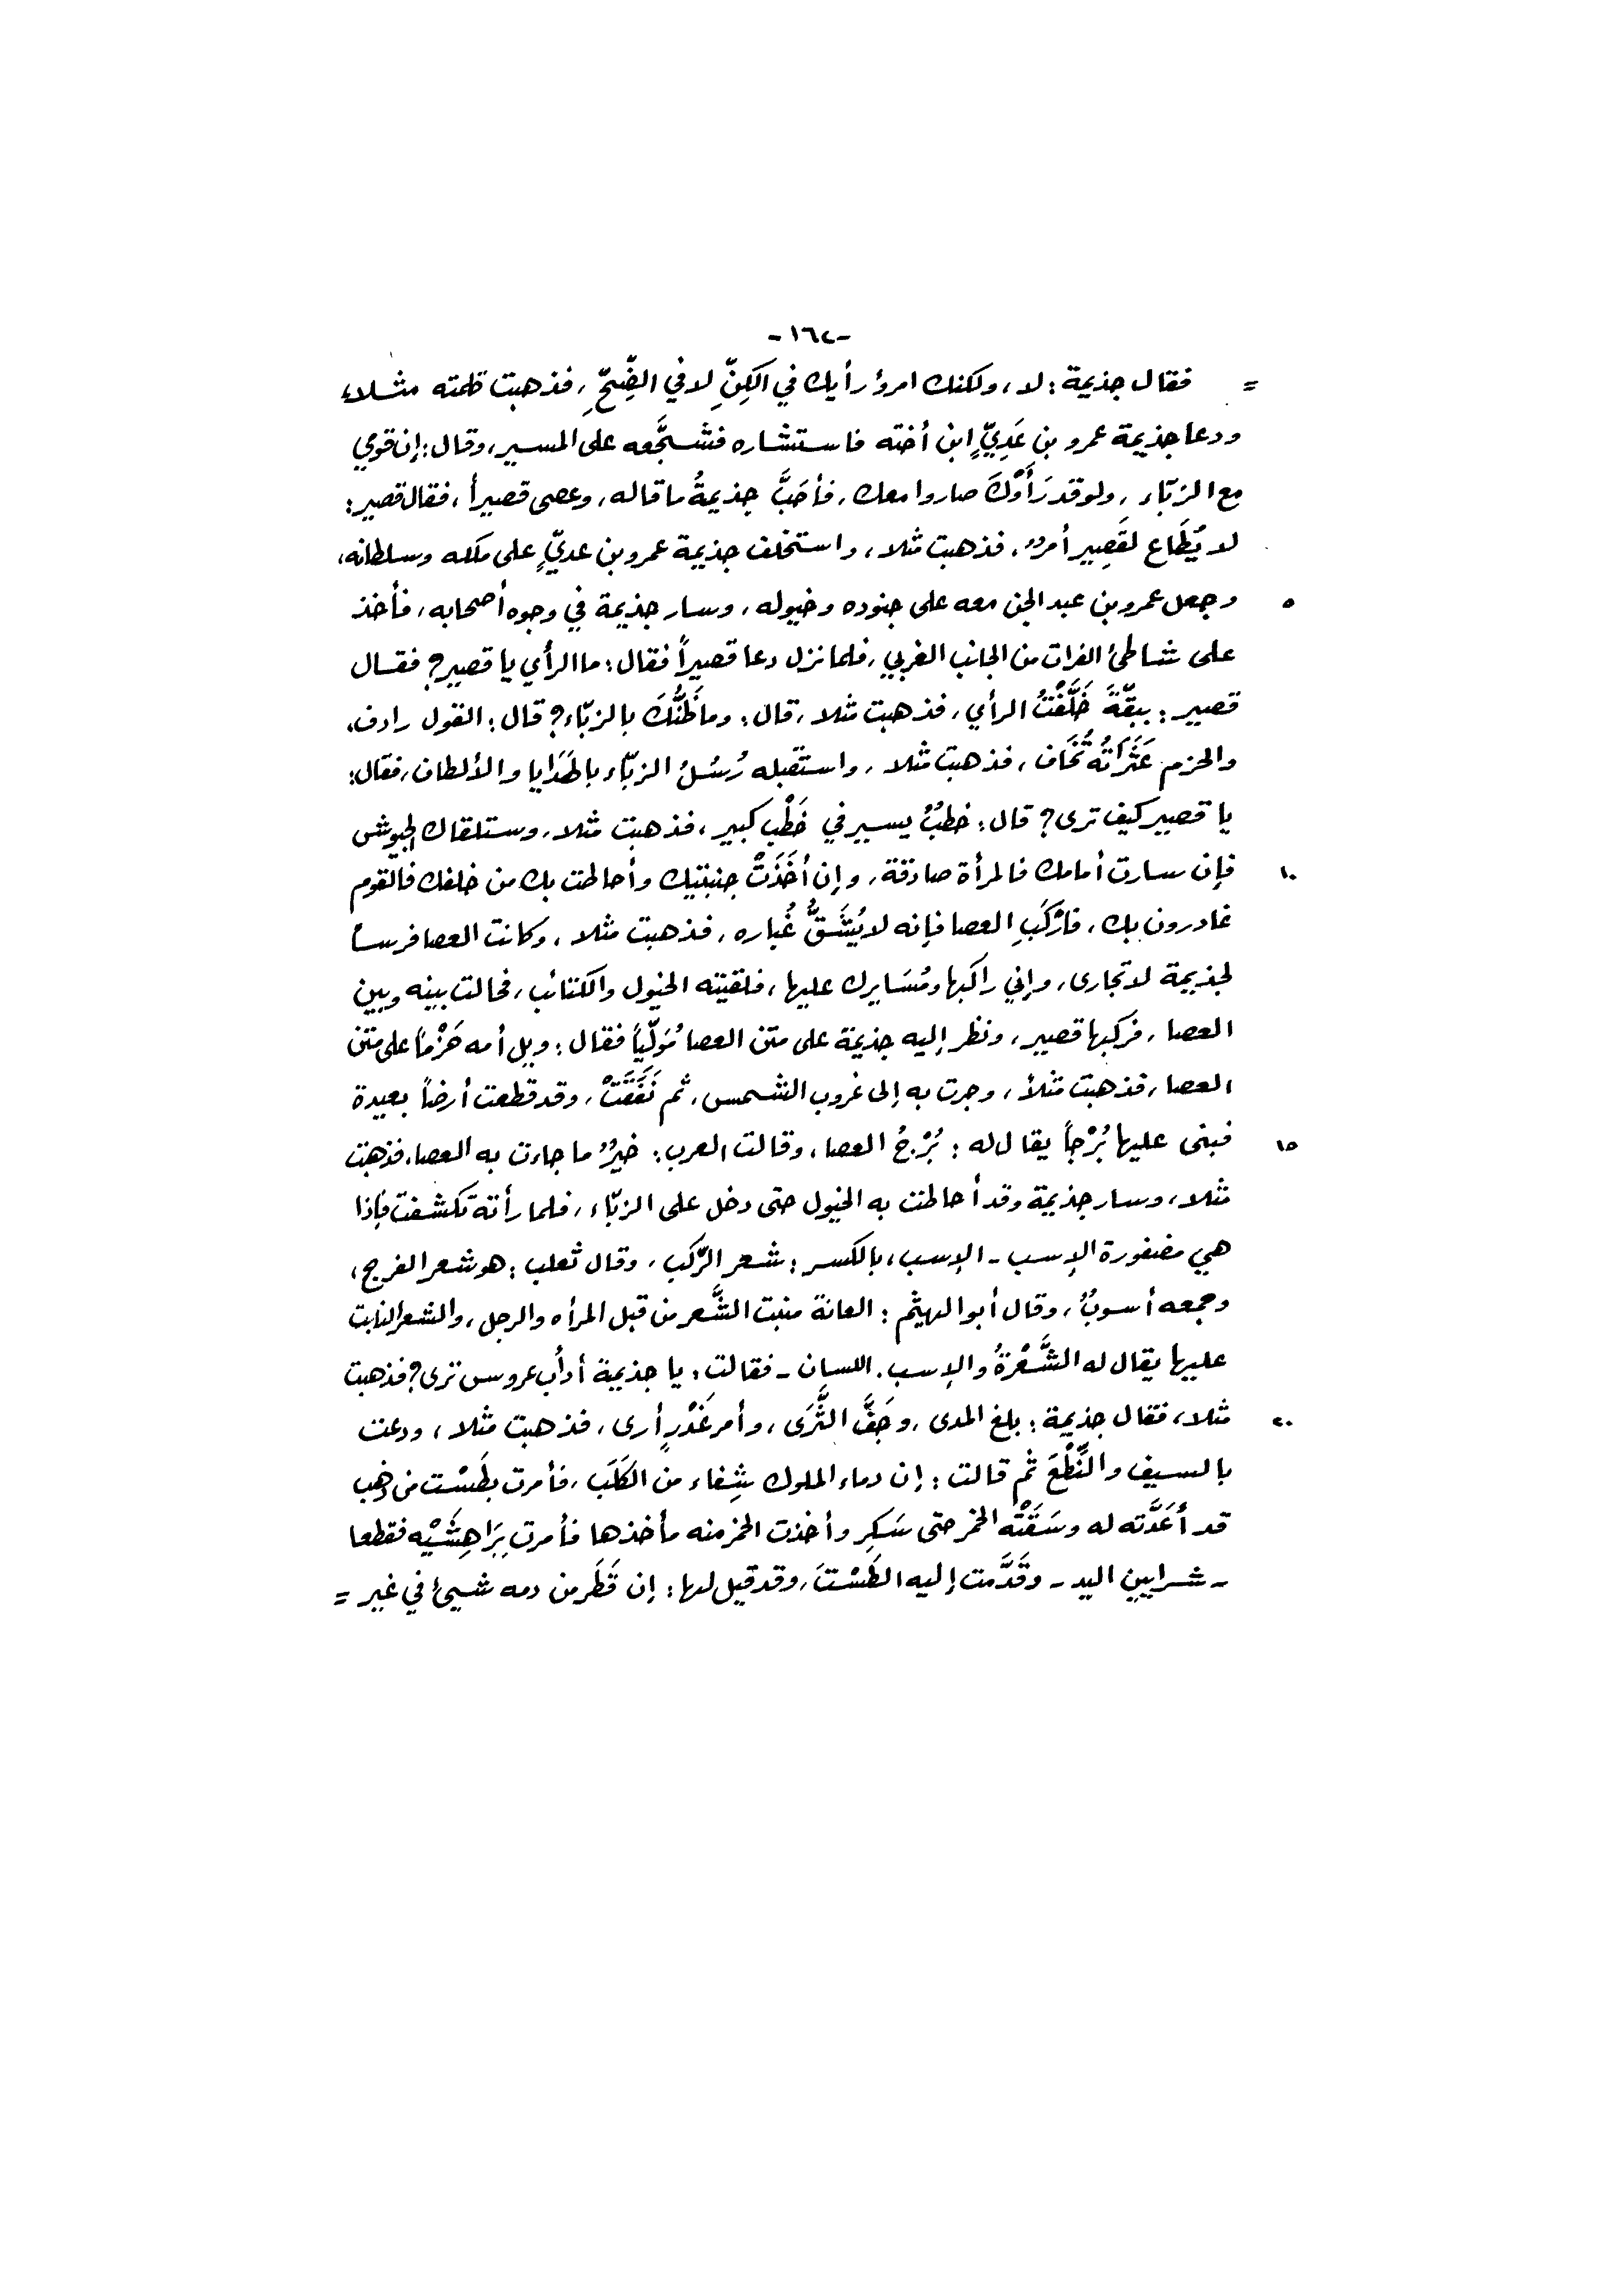 -١٦٢-
= فقال جذيمة: لا، ولكنك امرؤ رأيك في الكِنِّ لا في الضِّحِّ، فذهبت كلمته مثلاً،
ودعا جذيمة عمرو بن عَدِيٍّ ابن أخته فاستشاره فشجَّعه على المسير، وقال: إن قومي
مع الزبّاء، ولو قد رَأَوْكَ صاروا معك، فأحَبَّ جذيمةُ ما قاله، وعصى قصيراً، فقال قصير:
لا يُطَاع لقَصِير أمرٌ، فذهبت مثلا، واستخلف جذيمة عمرو بن عديٍّ على ملكه وسلطانه،
٥ وجعل عمرو بن عبد الجن معه على جنوده وخيوله، وسار جذيمة في وجوه أصحابه، فأخذ
على شاطئ الفرات من الجانب الغربي، فلما نزل دعا قصيراً فقال: ما الرأي يا قصير؟ فقال
قصير: ببقّةَ خَلَّفْتُ الرأي، فذهبت مثلا، قال: وما ظَنُّكَ بالزبّاء؟ قال: القول رادف،
والحزم عَثَرَاتُهُ تُخَاف، فذهبت مثلا، واستقبله رُسُلُ الزبّاء بالهَدَايا والألطاف، فقال:
يا قصير كيف ترى؟ قال: خطبٌ يسير في خَطْبٍ كبير، فذهبت مثلا، وستلقاك الجيوش
١٠ فإن سارت أمامك فالمرأة صادقة، وإن أخَذَتْ جنبتيك وأحاطت بك من خلفك فالقوم
غادرون بك، فارْكَبِ العصا فإنه لا يُشَقُّ غُباره، فذهبت مثلا، وكانت العصا فرساً
لجذيمة لا تجارى، وإني راكبها ومُسَايرك عليها، فلقيته الخيول والكتائب، فحالت بينه وبين
العصا، فركبها قصير، ونظر إليه جذيمة على متن العصا مُوَلّياً فقال: ويل أمه حَزْماً على متن
العصا، فذهبت مثلاً، وجرت به إلى غروب الشمس، ثم نَفَقَتْ، وقد قطعت أرضاً بعيدة
١٥ فبنى عليها بُرْجاً يقال له: بُرْجُ العصا، وقالت العرب: خيرٌ ما جاءت به العصا، فذهبت
مثلا، وسار جذيمة وقد أحاطت به الخيول حتى دخل على الزبّاء، فلما رأته تكشفت فإذا
هي مضفورة الإسب - الإسب، بالكسر: شعر الرّكب، وقال ثعلب: هو شعر الفرج،
وجمعه أسوبٌ، وقال أبو الهيثم: العانة منبت الشَّعر من قبل المرأه والرجل، والشعر النابت
عليها يقال له الشَّعْرةُ والإسب. اللسان - فقالت: يا جذيمة أدأب عروس ترى؟ فذهبت
٢٠ مثلا، فقال جذيمة: بلغ المدى، وجَفَّ الثَّرَى، وأمر غَدْرٍ أرى، فذهبت مثلا، ودعت
بالسيف والنِّطْعَ ثم قالت: إن دماء الملوك شِفاء من الكَلَب، فأمرت بطَسْت من ذهب
قد أعَدَّته له وسَقَتْه الخمر حتى سَكِر وأخذت الخمر منه مأخذها فأمرت بِرَاهِشَيْه فقطعا
- شرايين اليد - وقَدَّمت إليه الطَسْتَ، وقد قيل لها: إن قَطَر من دمه شيئ في غير =